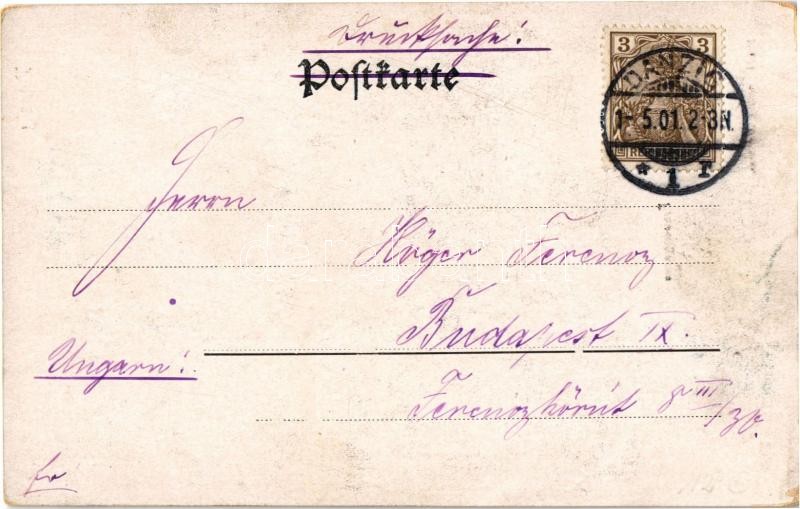 Drucksache!
Postkarte
3 3
DANZIG
1- 5.01 2-3N.
* 1 r
Herrn
Höger Ferencz
Budapest IX.
Ungarn!
Ferenczkörút 8 III/